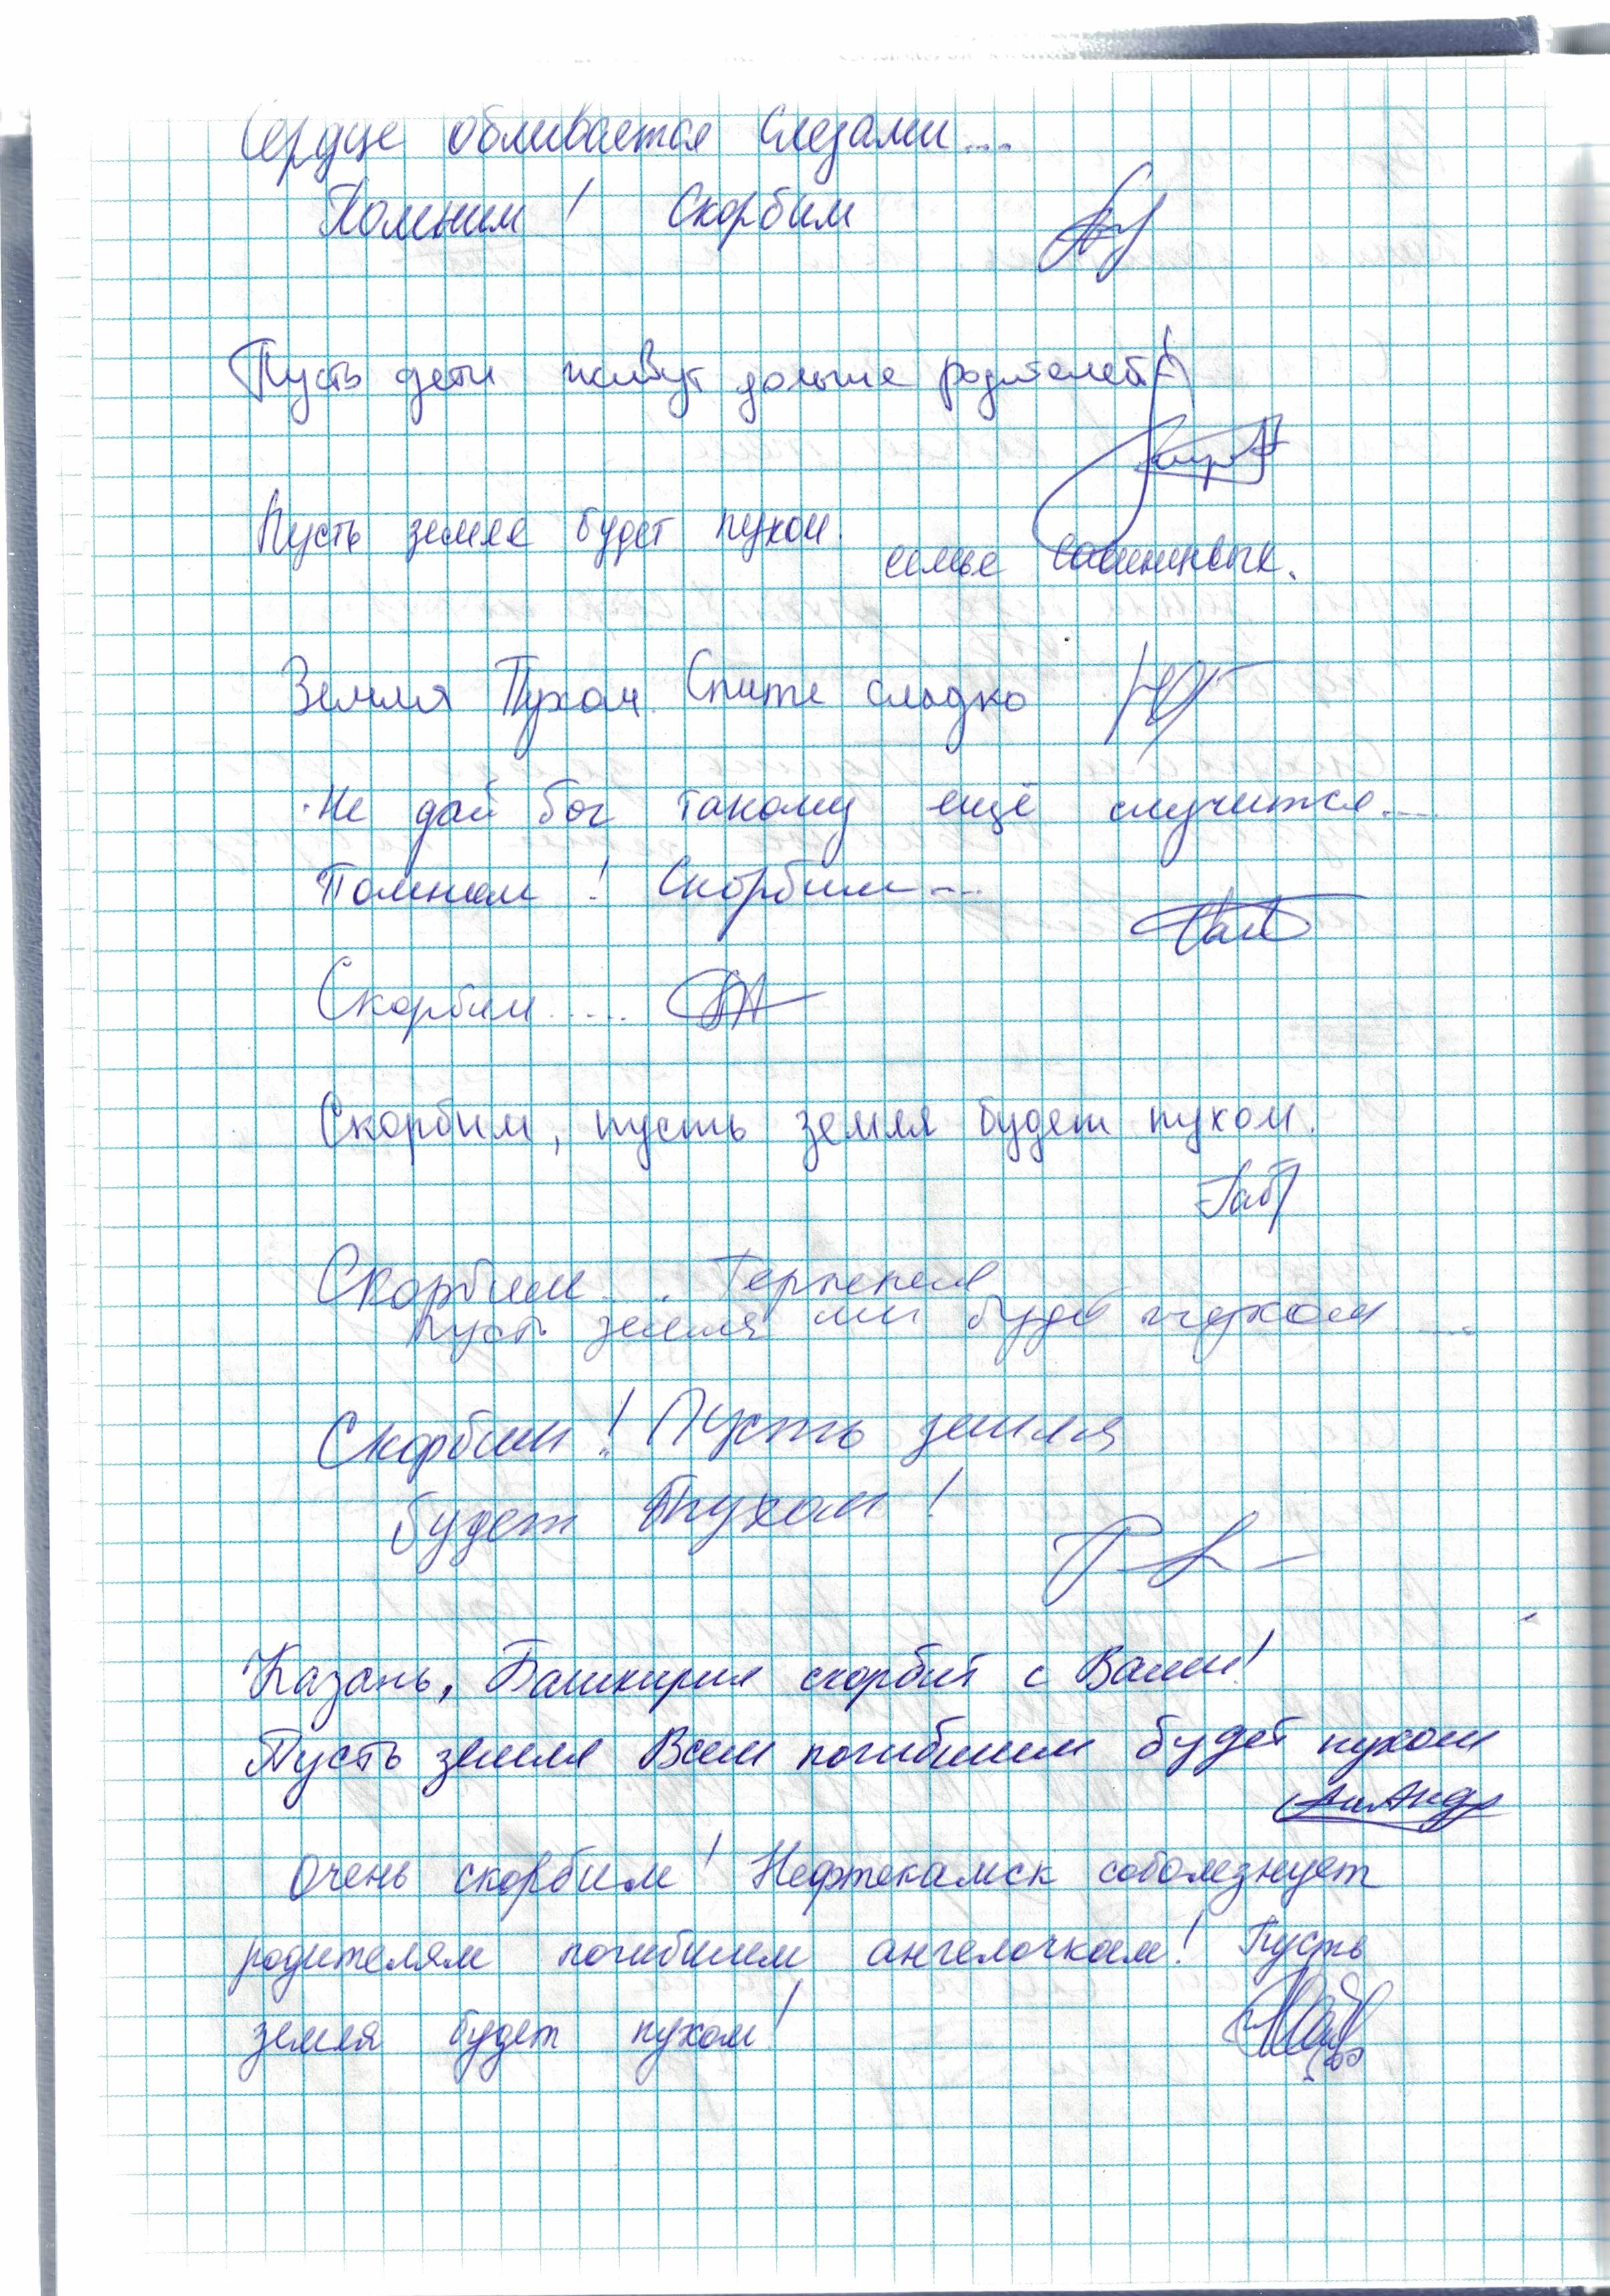 Сердце обливается слезами...
Помним! Скорбим
Пусть дети живут дольше родителей!
Пусть земля будет пухом.
семья
Земля Пухом. Спите сладко
Не дай бог такому ещё случится...
Помним! Скорбим...
Скорбим.....
Скорбим, пусть земля будет пухом.
Габ
Скорбим.... Терпения
Пусть земля им буде пухом ...
Скорбим! Пусть земля
будет пухом!
Казань, Башкирия скорбит с Вами!
Пусть земля Всем погибшим будет пухом
Очень скорбим! Нефтекамск соболезнует
родителям погибшим ангелочкам! Пусть
земля будет пухом!